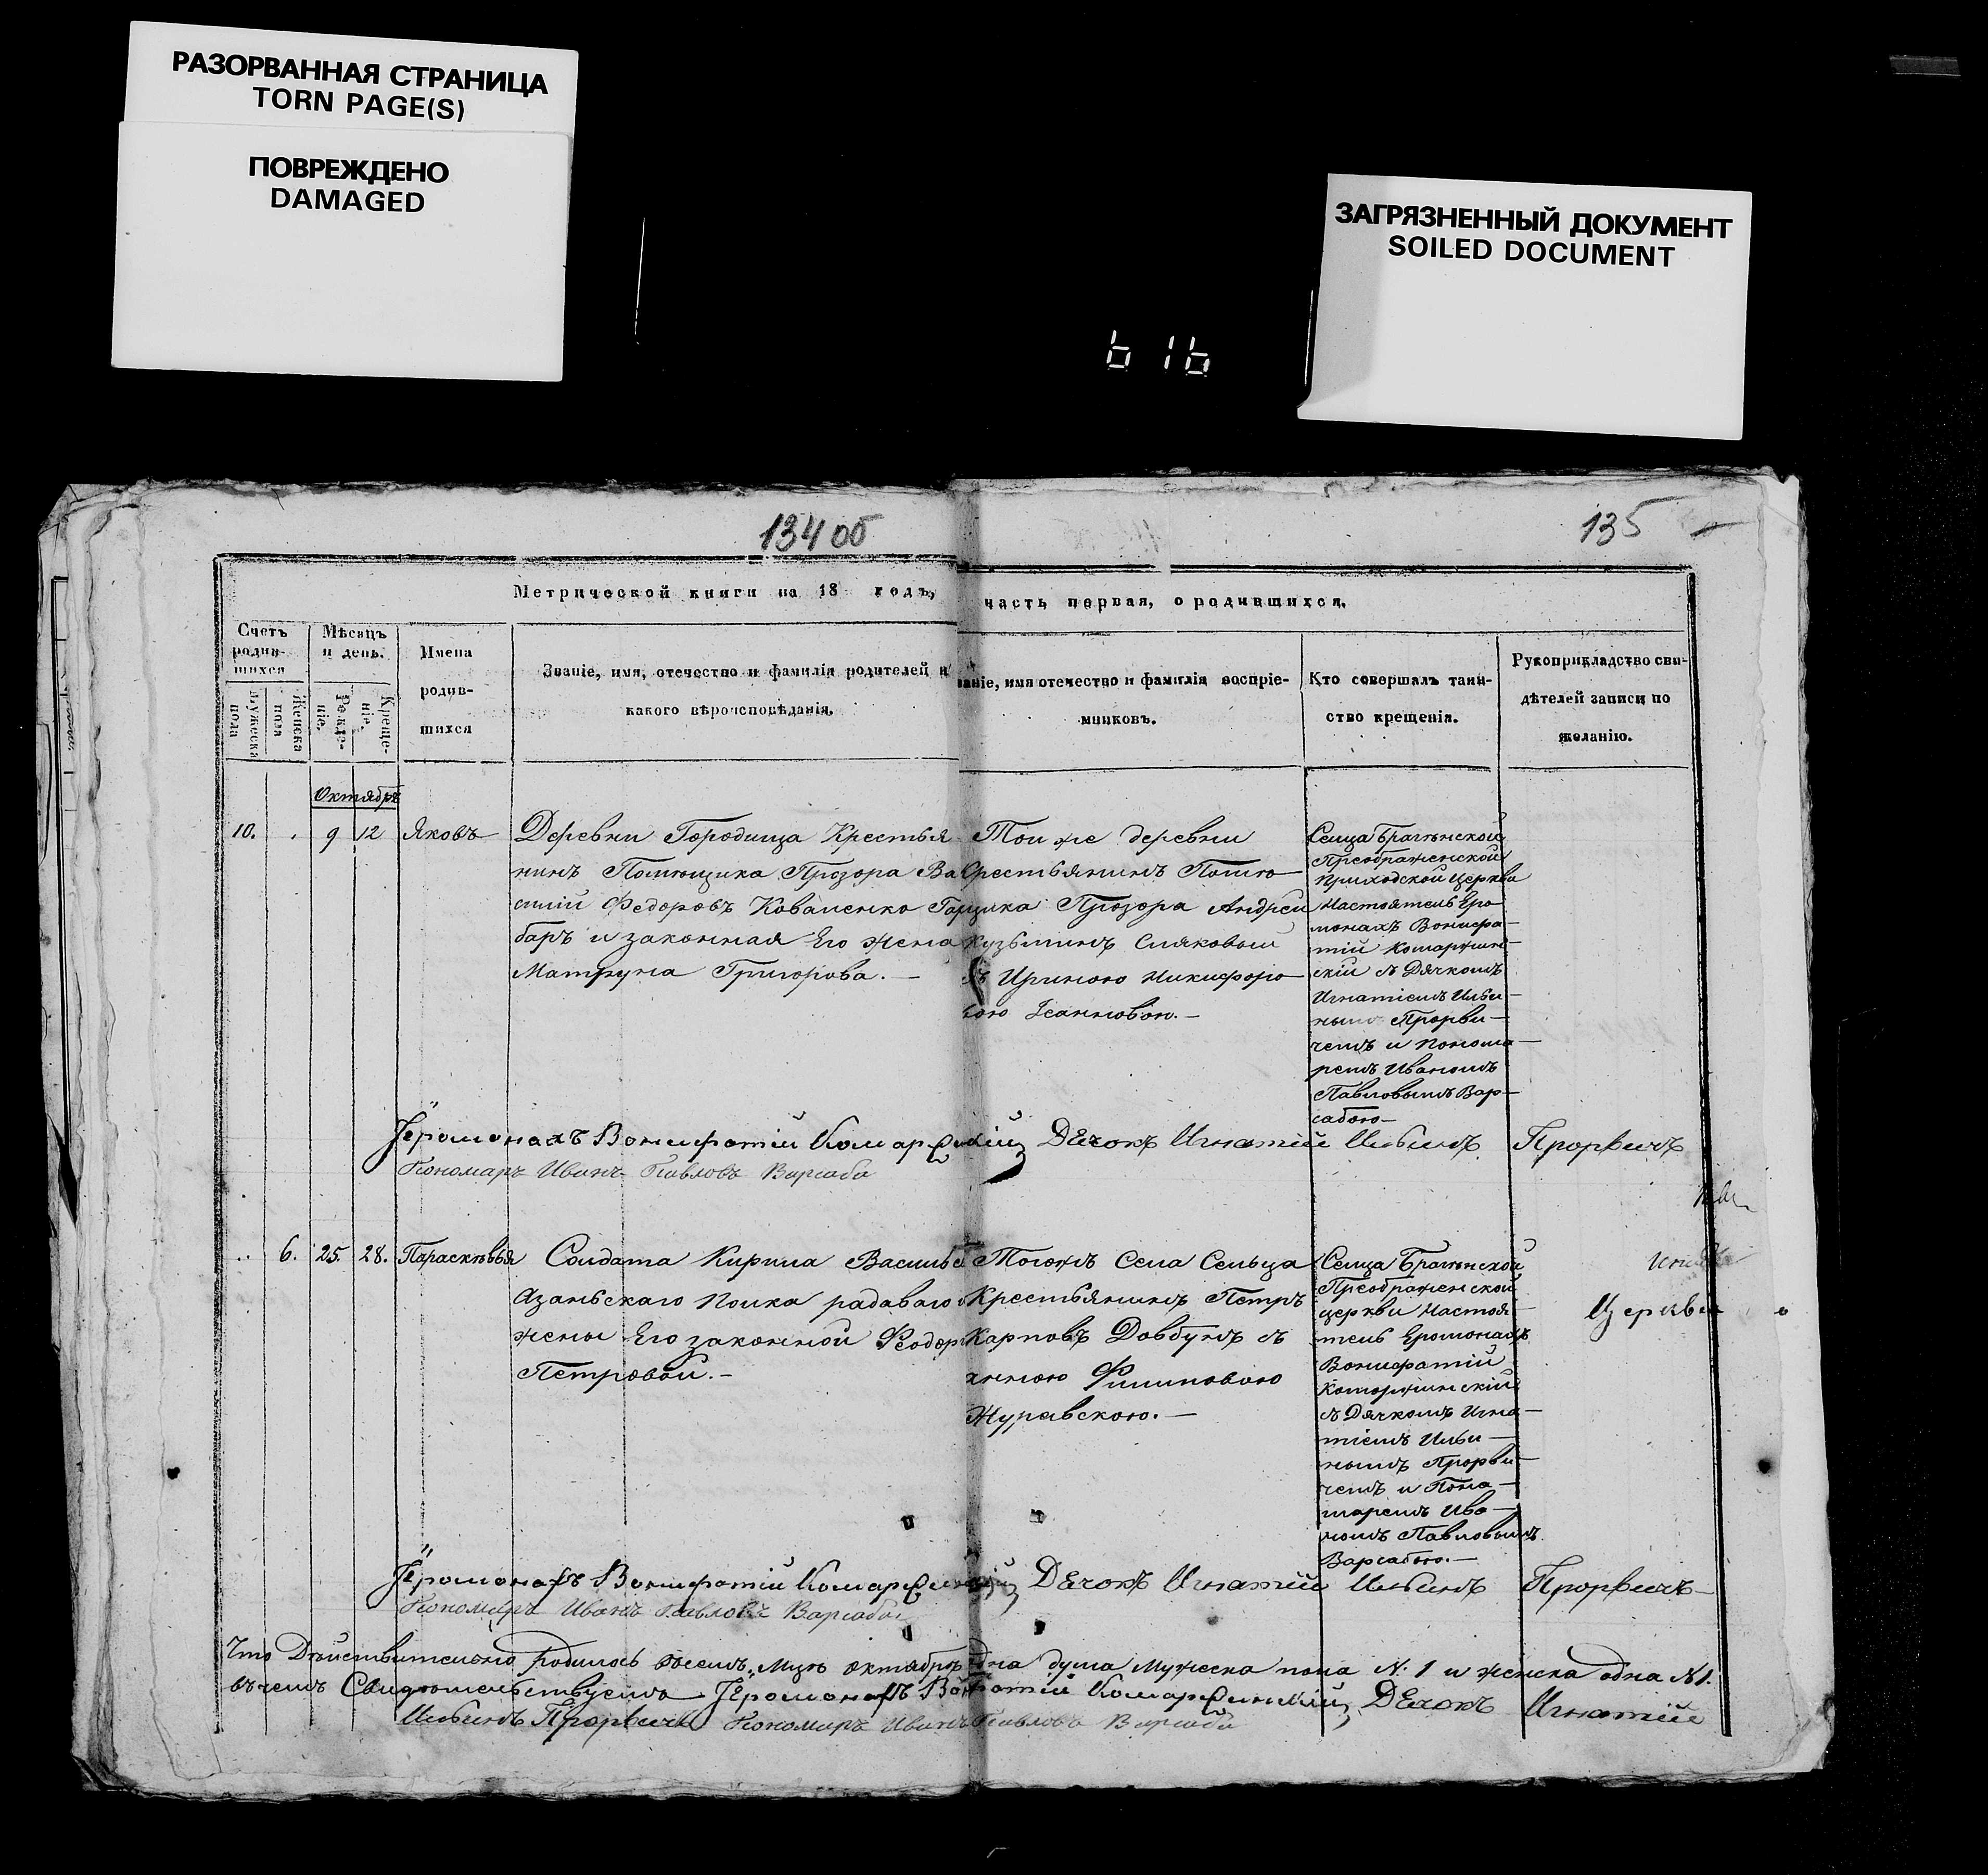 РАЗОРВАННАЯ СТРАНИЦА
TORN PAGE(S)
ПОВРЕЖДЕНО
DAMAGED
ЗАГРЯЗНЕННЫЙ ДОКУМЕНТ
SOILED DOCUMENT
616
134 об
135
Метрической книги на 18 годъ, часть первая, о родившихся.
Счетъ родив-шихся
Мужеска пола
Женска пола
Мѣсяцъ и день.
Рожде-ніе.
Креще-ніе.
Имена родив-шихся
Званіе, имя, отечество и фамилія родителей и
какого вѣроисповѣданія.
ваніе, имя отечество и фамилія воспріе-
мниковъ.
Кто совершалъ таин-
ство крещенія.
Рукоприкладство сви-
дѣтелей записи по
желанію.
Октябрь
10. 9 12 Яковъ
Деревни Городища Крестья
нинъ Помющика Прозора Ва
силій Федоровъ Коваленко Гон
баръ и законная Его жена
Матруна Григорова.—
Той же деревни
Крестьянинъ Помю
щика Прозора Андрей
Кузьминъ
съ Ириною Никифоро
вою Іванновою.—
Селца Брагинской
Преображенской
Приходской Церкви
Настоятель Еро
монахъ Вонифа—
тій Комаржин—
скій съ Дячкомъ
Игнатіемъ Ильи—
нымъ Прорви—
чемъ и Понома—
ремъ Иваномъ
Павловымъ Вар—
сабою—
Іеромонахъ Вонифатій Комаржинскій Дечокъ Игнатій Ильинъ Прорвичъ
Пономаръ Иванъ Павловъ Варсаба
6. 25. 28. Параскѣвья
Солдата Кирила Василье
Азаньскаго Полка радаваго
жены Его законной Феодор
Петровой.—
Тогожъ Села Сельца
Крестьянинъ Петръ
Карповъ Довбунъ съ
Анною Филиповою
Журавскою.—
Селца Брагинской
Преображенской
церкви Настоя—
тель Еромонахъ
Вонифатій
Комаржинскій
съ Дячкомъ Игна—
тіемъ Ильи—
нымъ Прорви—
чемъ и Поно—
маремъ Ива—
номъ Павловымъ
Варсабою.—
Церкви
Іеромонахъ Вонифатій Комаржинскій Дечокъ Игнатій Ильинъ Прорвичъ—
Пономаръ Иванъ Павловъ Варсаба
Что Дѣйствительно родилось всемъ Мцѣ октябрѣ одна душа мужеска пола №. 1 и женска одна №1.
въ чемъ Свидѣтельствуемъ Іеромонахъ Вонифатій Комаржинскій Дечокъ Игнатій
Ильинъ Прорвичъ Пономаръ Иванъ Павловъ Варсаба